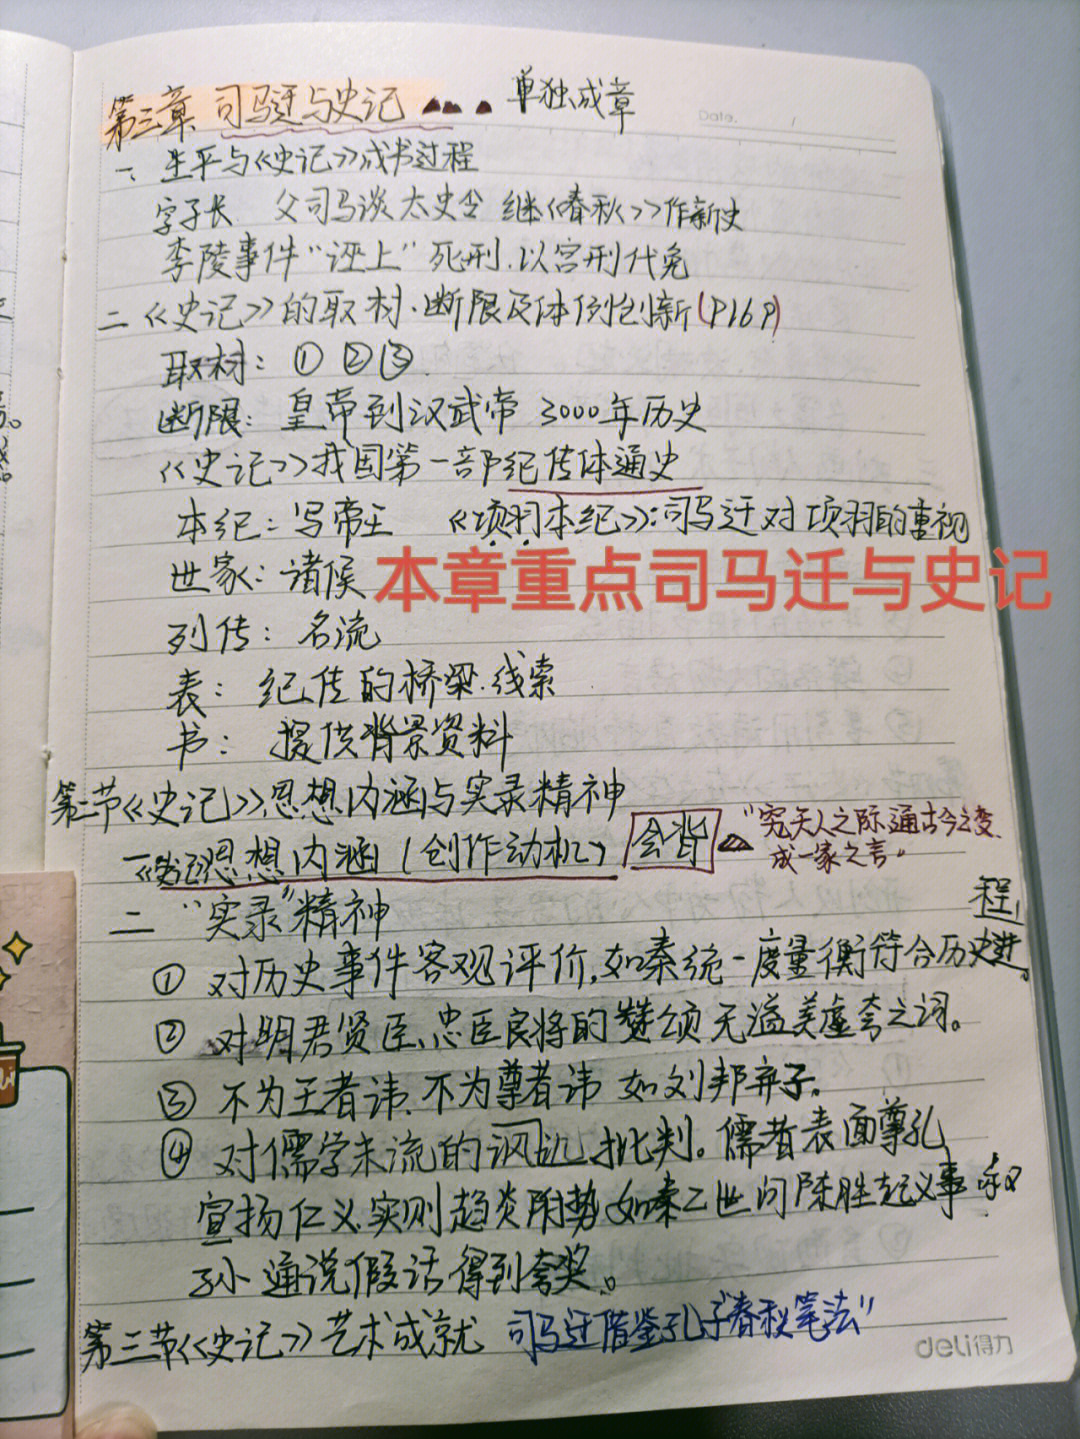 第三章 司马迁与史记 单独成章
Date.
一、生平与《史记》成书过程
字子长 父司马谈 太史令 继《春秋》作新史
李陵事件“诬上”死刑.以宫刑代免
二《史记》的取材、断限及体例创新(P169)
取材：① ② ③
断限：皇帝到汉武帝 3000年历史
《史记》我国第一部纪传体通史
本纪：写帝王 《项羽本纪》:司马迁对项羽的重视
世家：诸侯
本章重点司马迁与史记
列传：名流
表：纪传的桥梁.线索
书：提供背景资料
第二节《史记》思想内涵与实录精神
一《史记》思想内涵（创作动机） 会背 “究天人之际,通古今之变、
成一家之言。
二 “实录”精神
① 对历史事件客观评价,如秦统一度量衡符合历史进程。
② 对明君贤臣、忠臣良将的赞颂无溢美虚夸之词。
③ 不为王者讳、不为尊者讳 如刘邦弃子。
④ 对儒学末流的讽 批判。儒者表面尊孔
宣扬仁义,实则趋炎附势 如秦二世问陈胜起义事 叔
孙通说假话得到夸奖。
第三节《史记》艺术成就 司马迁借鉴孔子“春秋笔法”
deli得力